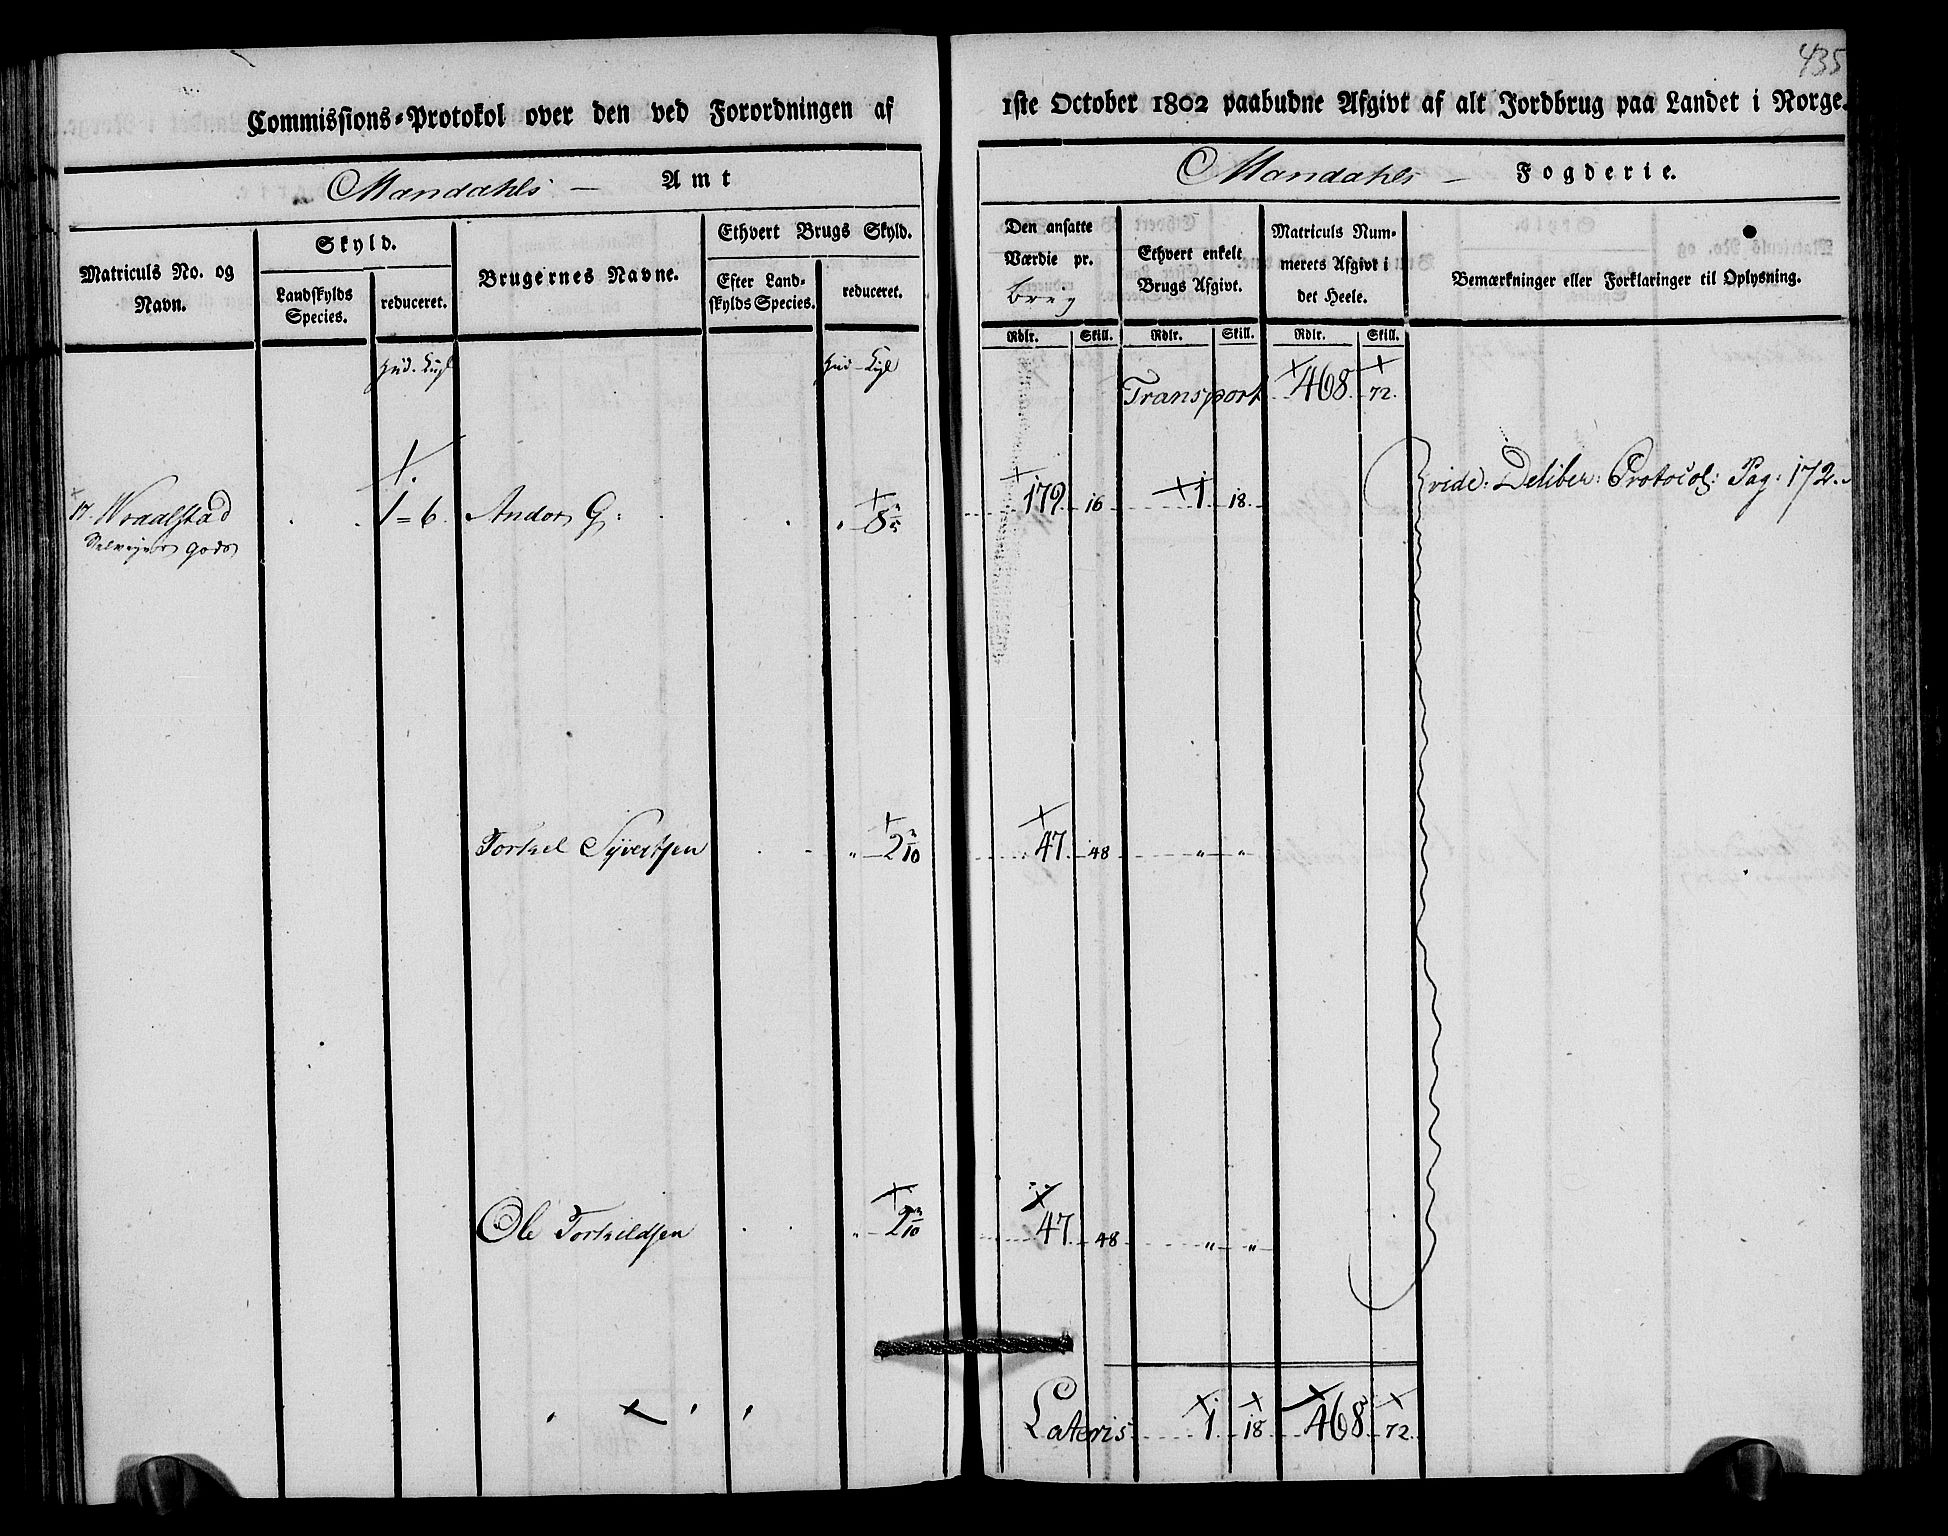 435
Commissions-Protokol over den ved Forordningen af
1ste October 1802 paabudne Afgivt af alt Jordbrug paa Landet i Norge.
Mandahls — Amt
Mandahls — Fogderie.
Matriculs No. og Navn.
Skyld.
Landskylds Species.
reduceret.
Brugernes Navne.
Ethvert Brugs Skyld.
Efter Landskylds Species.
reduceret.
Den ansatte Værdie pr.
brug
Ethvert enkelt Brugs Afgivt.
Matriculs Nummerets Afgivt i det Heele.
Bemærkninger eller Forklaringer til Oplysning.
Rdlr. Skill. Rdlr. Skill. Rdlr. Skill.
Hud
Hud
Transport 468 72.
17. Wraalstad 1=6 Andor G: 179 16 1 18. vide: Deliber: Protocol: Pag: 172.
gods
Torkel Syvertsen „ 2 3/10 47 48 „ „
Ole Torkildsen „ 2 3/10 47 48 „ „
Lateris 1 18 468 72.